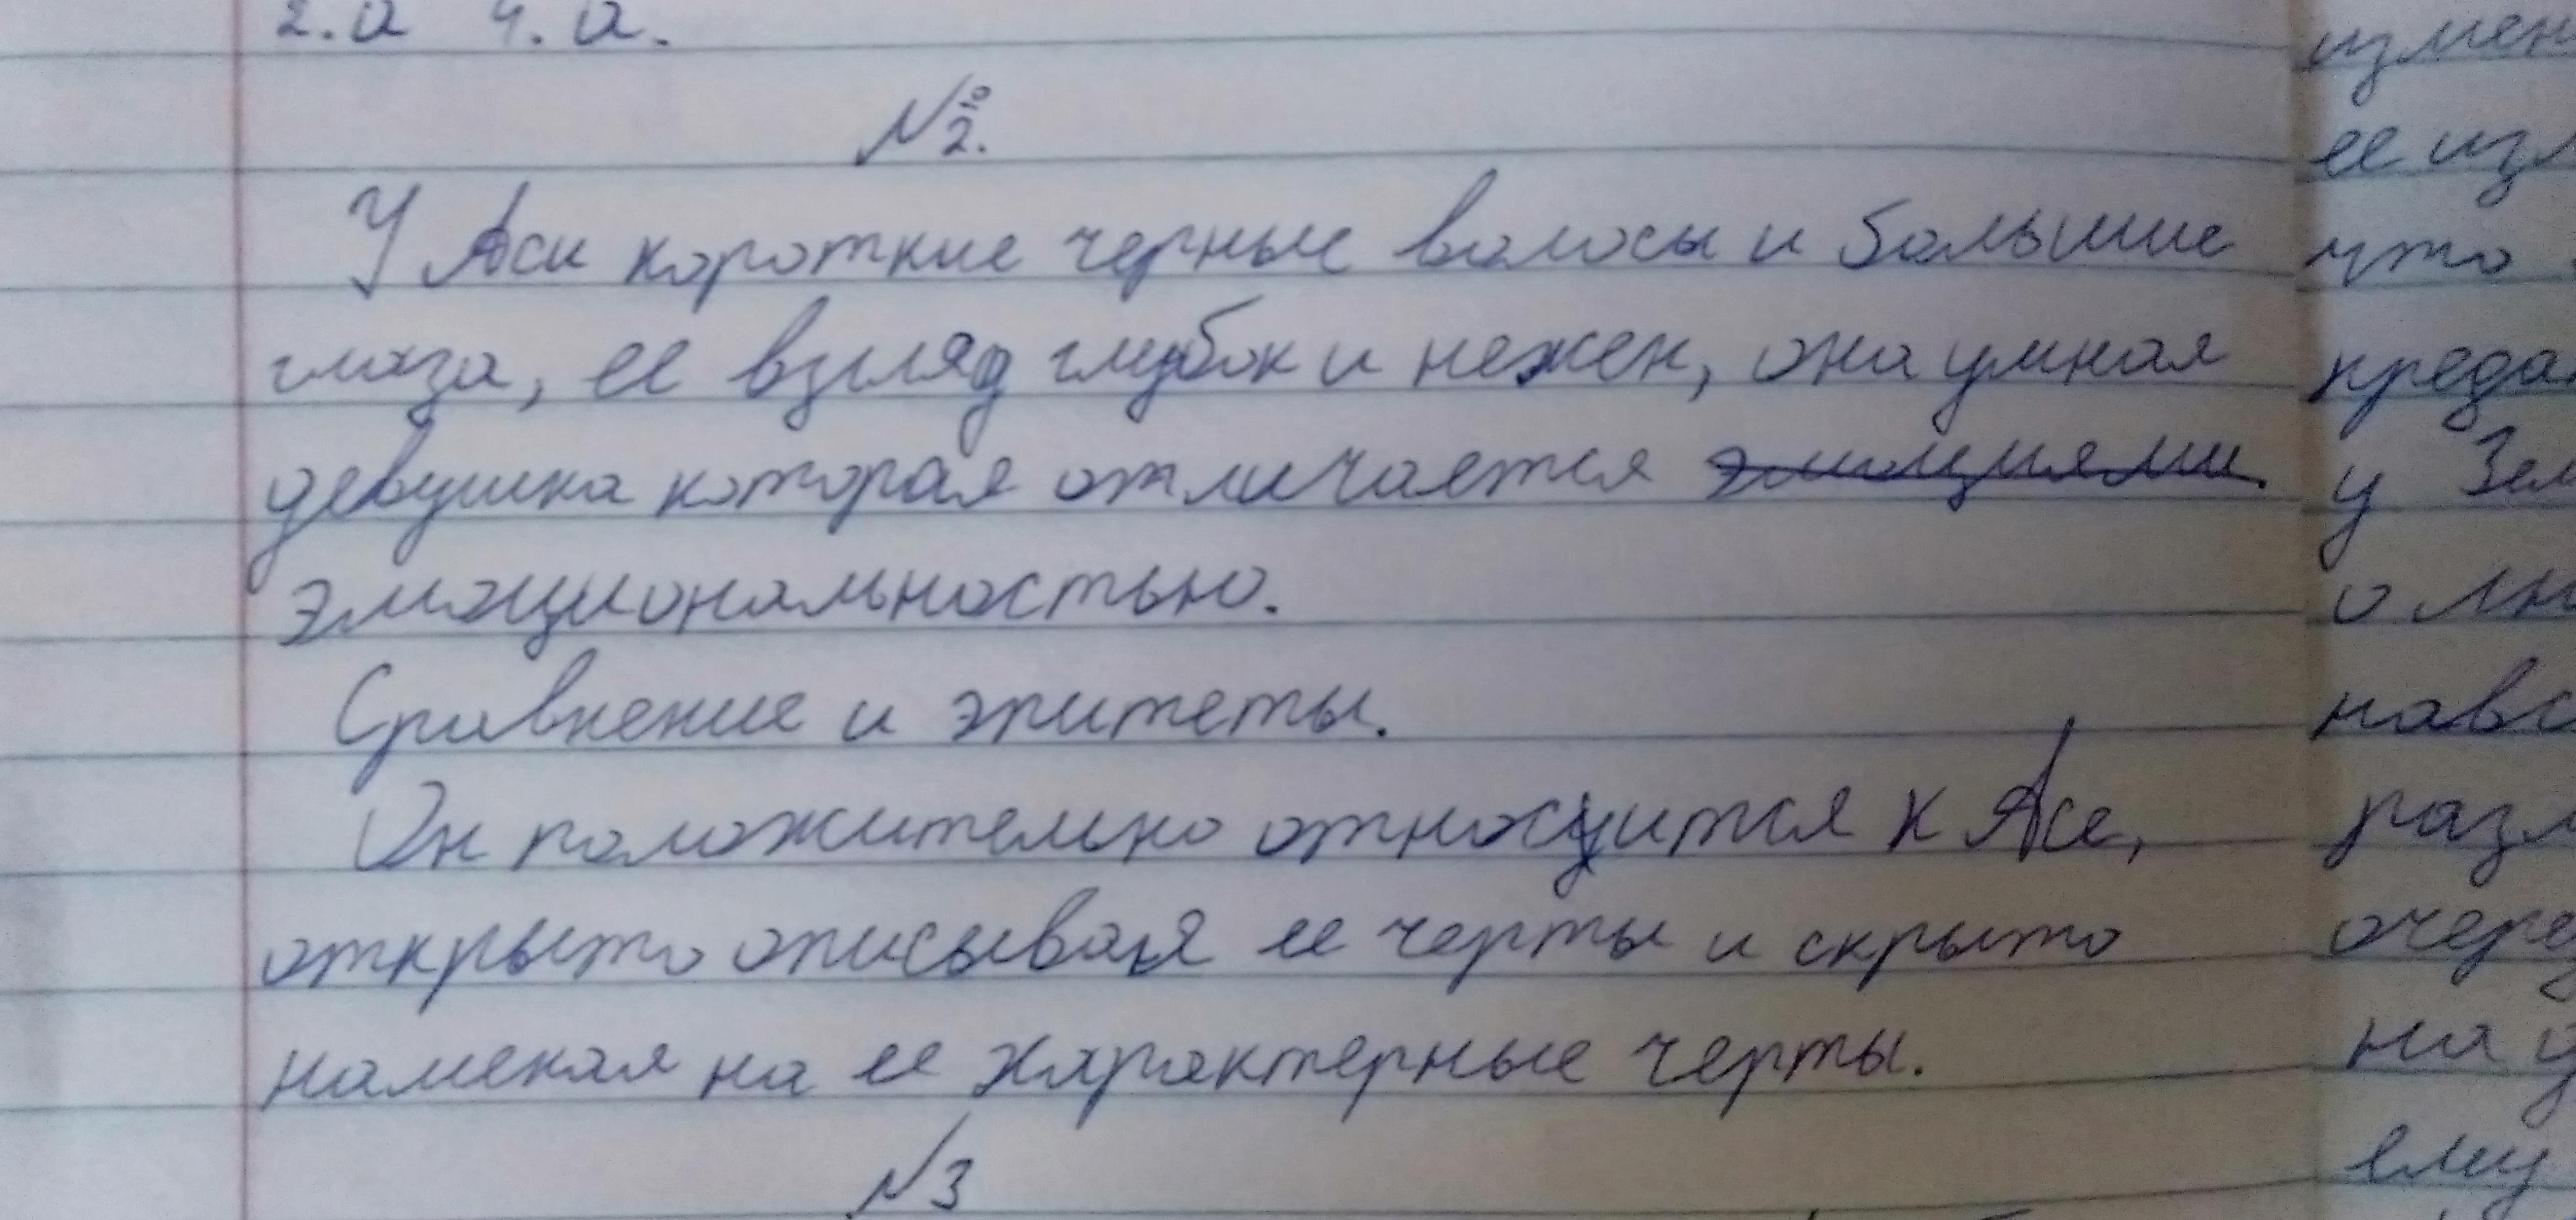 2.а 4.а.
№2.
У Аси короткие черные волосы и большие
глаза, ее взгляд глубок и нежен, она умная
девушка которая отличается эмоциями
эмоциональностью.
Сравнение и эпитеты.
Он положительно относится к Асе,
открыто описывая ее черты и скрыто
намекая на ее характерные черты.
№3
измен
ее изм
что
преда
у Зем
о лю
навс
разл
очере
на у
ему